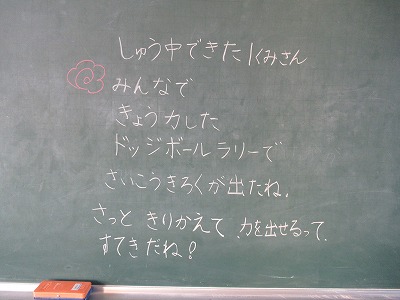 しゅう中できた1くみさん
みんなで
きょう力した
ドッジボールラリーで
さいこうきろくが出たね。
さっと きりかえて 力を出せるって、
すてきだね!